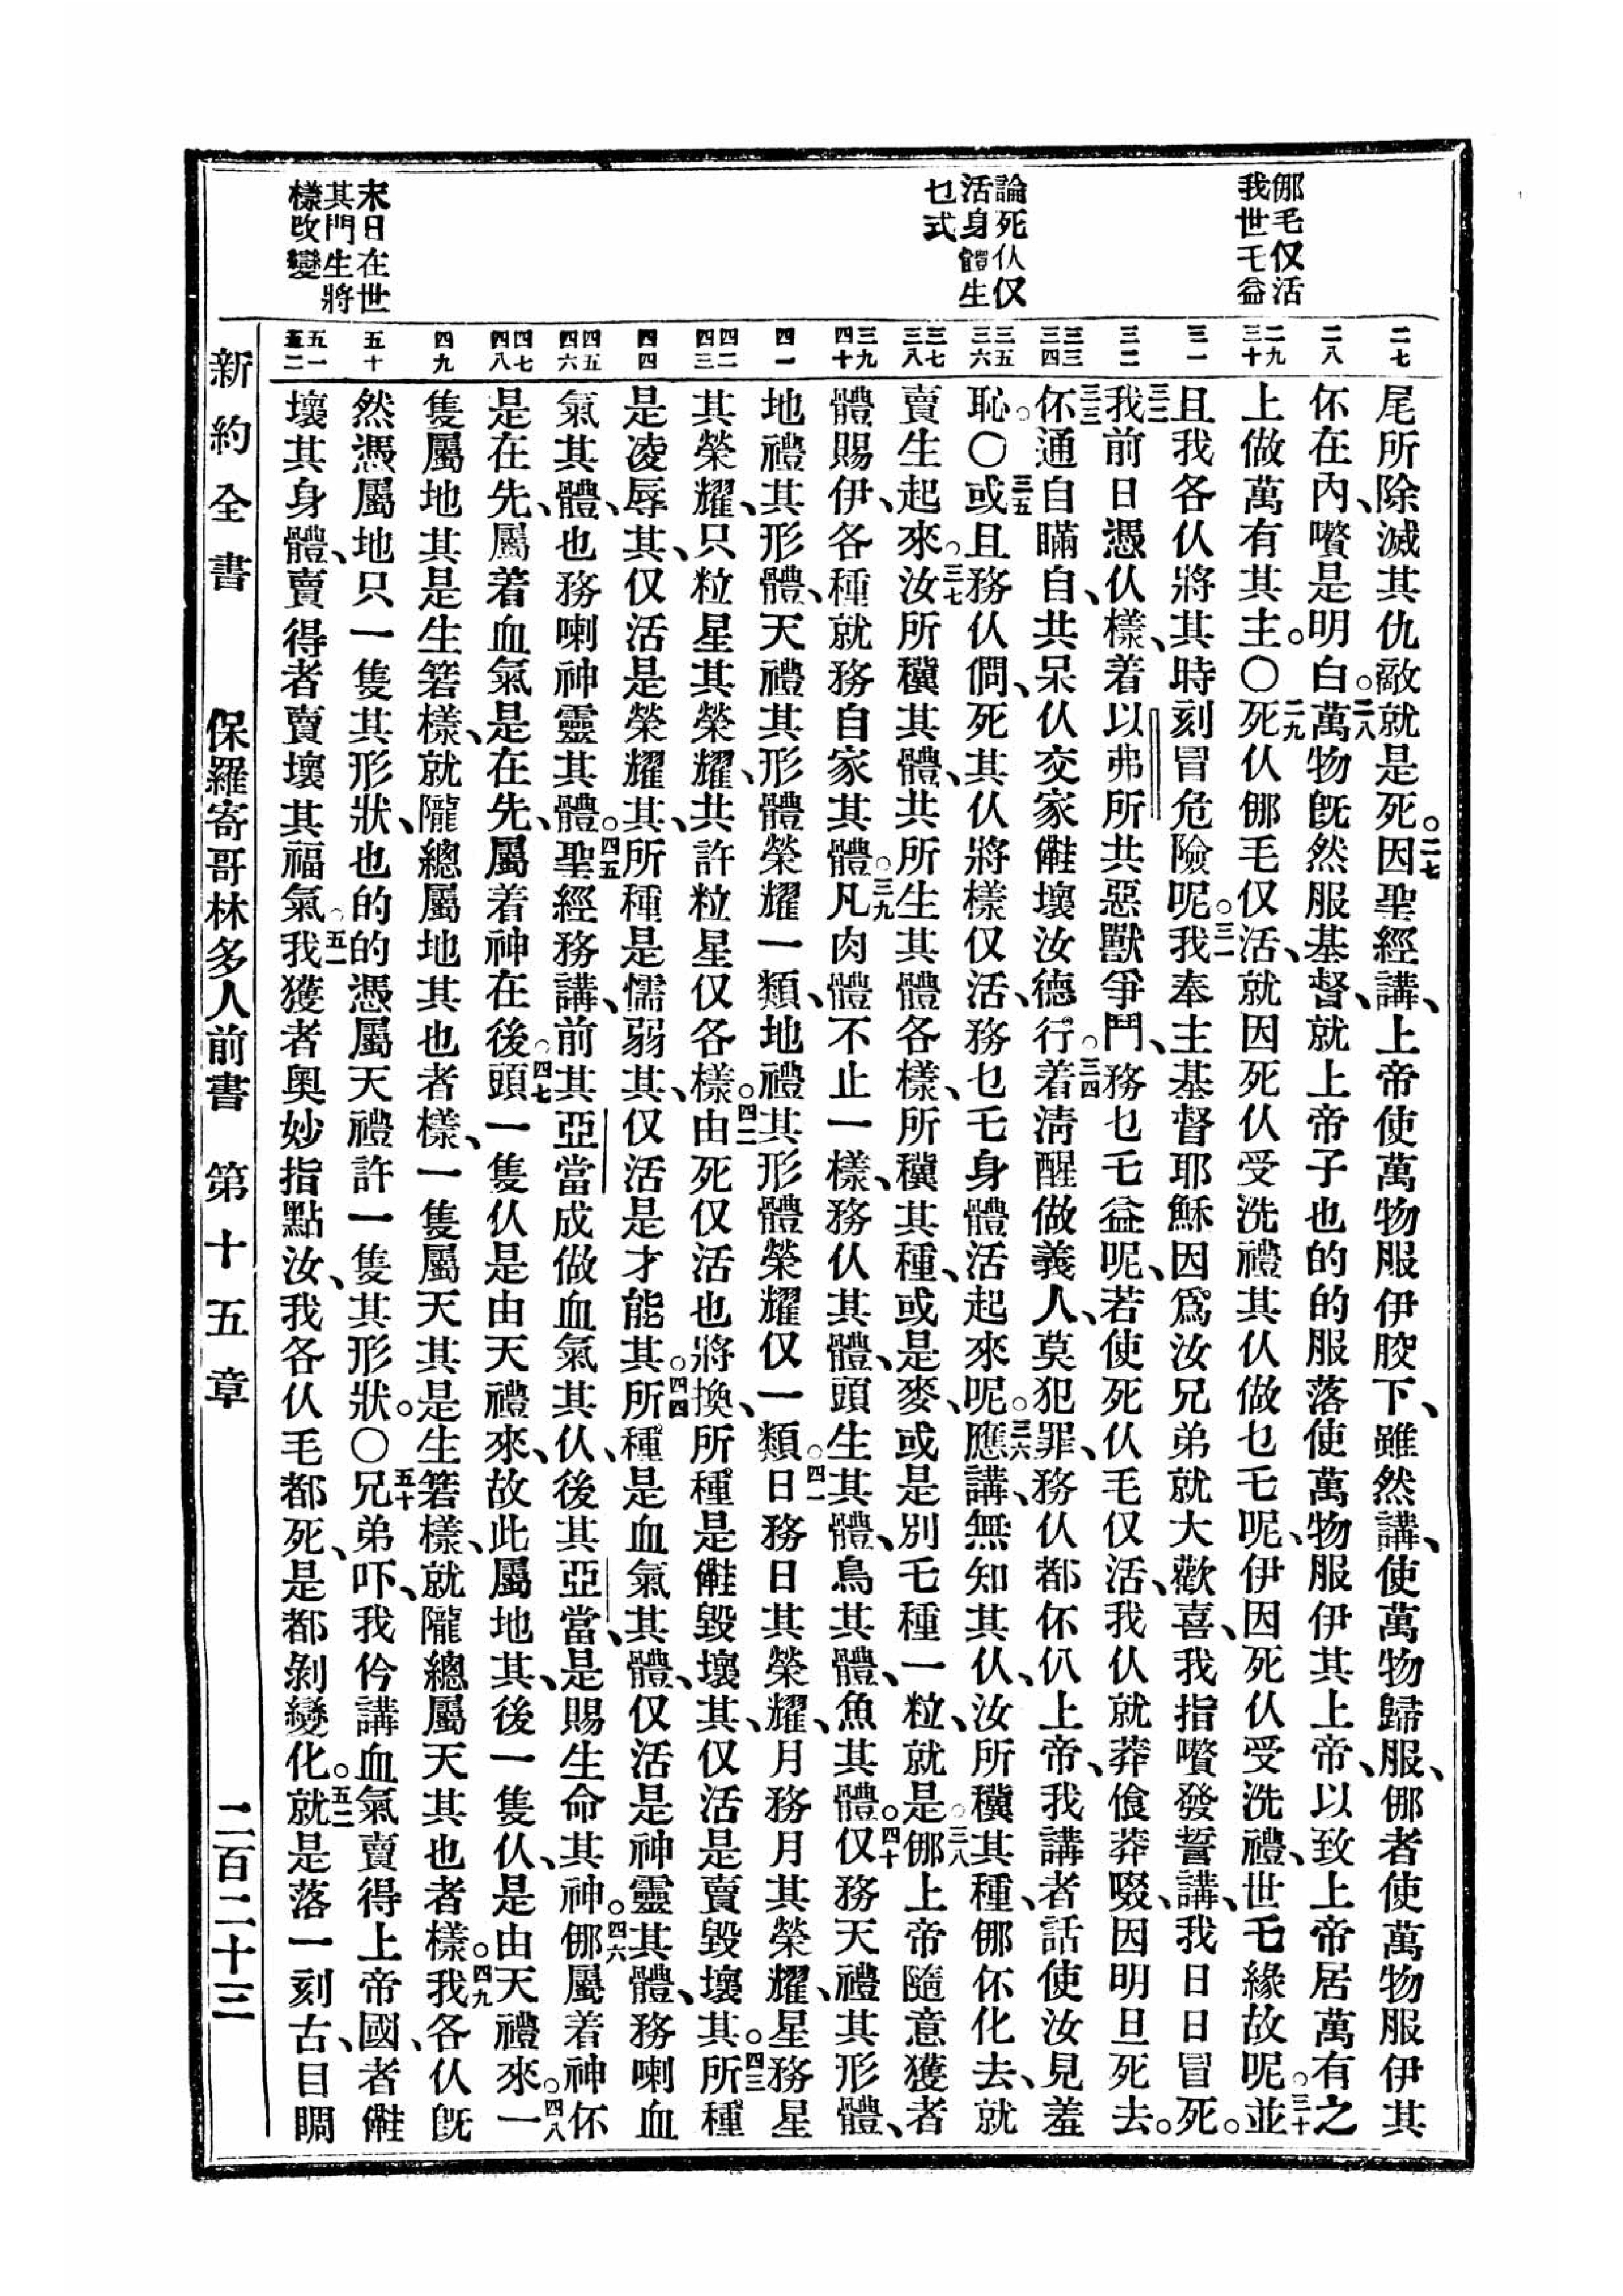 倻毛仅活
我世乇益
論死仫仅
活身體生
乜式
末日在世
其門生將
樣改變
二七
二八
二九
三十
三一
三二
三三
三四
三五
三六
三七
三八
三九
四十
四一
四二
四三
四四
四五
四六
四七
四八
四九
五十
五一
五二
尾所除滅其仇敵就是死。二七因聖經講、上帝使萬物服伊腔下、雖然講、使萬物歸服、倻者使萬物服伊其
伓在內、囋是明白。二八萬物既然服基督、就上帝子也的的服落使萬物服伊其上帝、以致上帝居萬有之
上做萬有其主。〇二九死仫倻毛仅活、就因死仫受洗禮其仫做乜乇呢、伊因死仫受洗禮、世乇緣故呢。三十並
且我各仫將其時刻冒危險呢。三一我奉主基督耶穌因爲汝兄弟就大歡喜、我指囋發誓講、我日日冒死。
三二我前日憑仫樣、着以弗所共惡獸爭鬥、務乜乇益呢、若使死仫毛仅活、我仫就莽飡莽啜、因明旦死去。
三三伓通自瞞自、共呆仫交家𠆧壞汝德行。三四着淸醒做義人、莫犯罪、務仫都伓仈上帝、我講者話使汝見羞
恥。〇三五或且務仫倜、死其仫將樣仅活、務乜乇身體活起來呢。三六應講、無知其仫、汝所穬其種、倻伓化去、就
賣生起來。三七汝所穬其體、共所生其體各樣、所穬其種、或是麥、或是別乇種一粒、就是。三八倻上帝隨意獲者
體賜伊、各種就務自家其體。三九凡肉體不止一樣、務仫其體、頭生其體、鳥其體、魚其體。四十仅務天禮其形體、
地禮其形體、天禮其形體榮耀一類、地禮其形體榮耀仅一類。四一日務日其榮耀、月務月其榮耀、星務星
其榮耀、只粒星其榮耀、共許粒星仅各樣。四二由死仅活也將換、所種是𠆧毀壞其、仅活是賣毀壞其。四三所種
是凌辱其、仅活是榮耀其、所種是懦弱其、仅活是才能其。四四所種是血氣其體、仅活是神靈其體、務喇血
氣其體、也務喇神靈其體。四五聖經務講、前其亞當成做血氣其仫、後其亞當、是賜生命其神。四六倻屬着神伓
是在先、屬着血氣是在先、屬着神在後。四七頭一隻仫是由天禮來、故此屬地其、後一隻仫、是由天禮來。四八一
隻屬地其是生箬樣、就隴總屬地其也者樣、一隻屬天其是生箬樣、就隴總屬天其也者樣。四九我各仫既
然憑屬地只一隻其形狀、也的的憑屬天禮許一隻其形狀。〇五十兄弟吓、我仱講血氣賣得上帝國、者𠆧
壞其身體、賣得者賣壞其福氣。五一我獲者奧妙指點汝、我各仫毛都死、是都剝變化。五二就是落一刻古、目瞤
新約全書 保羅寄哥林多人前書 第十五章 二百二十三